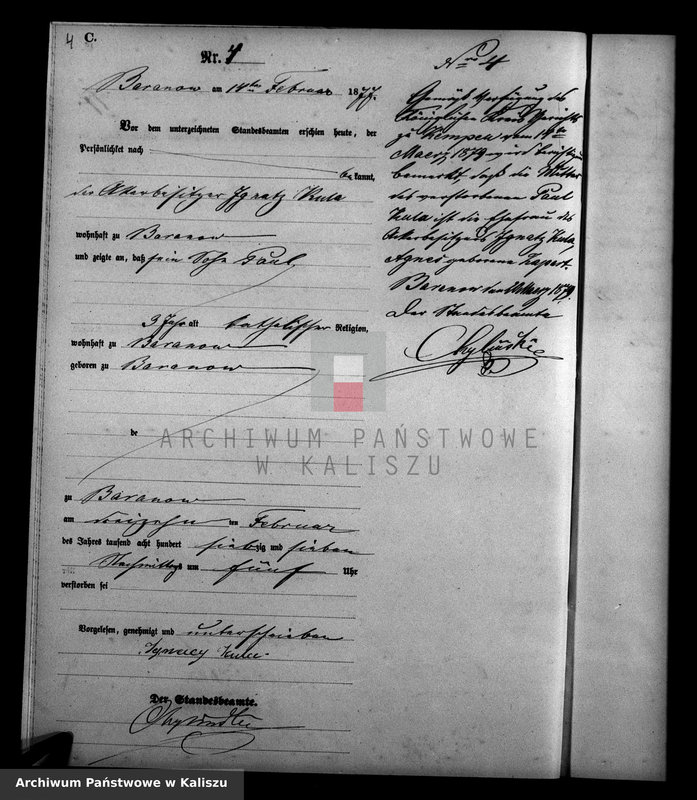 4 C.
Nr. 4
Baranow am 14ten Februar 1877.
Vor dem unterzeichneten Standesbeamten erschien heute, der
Persönlichkeit nach
bekannt,
der Akerbesitzer Ignatz Kula
wohnhaft zu Baranow
und zeigte an, daß sein Sohn Paul,
3 Jahr alt katholischer Religion,
wohnhaft zu Baranow
geboren zu Baranow
zu Baranow
am dreizehn ten Februar
des Jahres tausend acht hundert siebzig und sieben
Nachmittags um fünf Uhr
verstorben sei
Vorgelesen, genehmigt und unterschrieben
Ignacy Kula
Der Standesbeamte.
Nro 4
Gemäß Verfügung des
Königlichen Kreis Gerichts
zu Kempen vom 14ten
Maerz 1879 wird berichtigend
bemerkt, daß die Mutter
des verstorbenen Paul
Kula ist die Ehefrau des
Akerbesitzers Ignatz Kula
Agnes geborene Kapert.
Baranow den Maerz 1879.
Der Standesbeamte
ARCHIWUM PAŃSTWOWE
W KALISZU
Archiwum Państwowe w Kaliszu